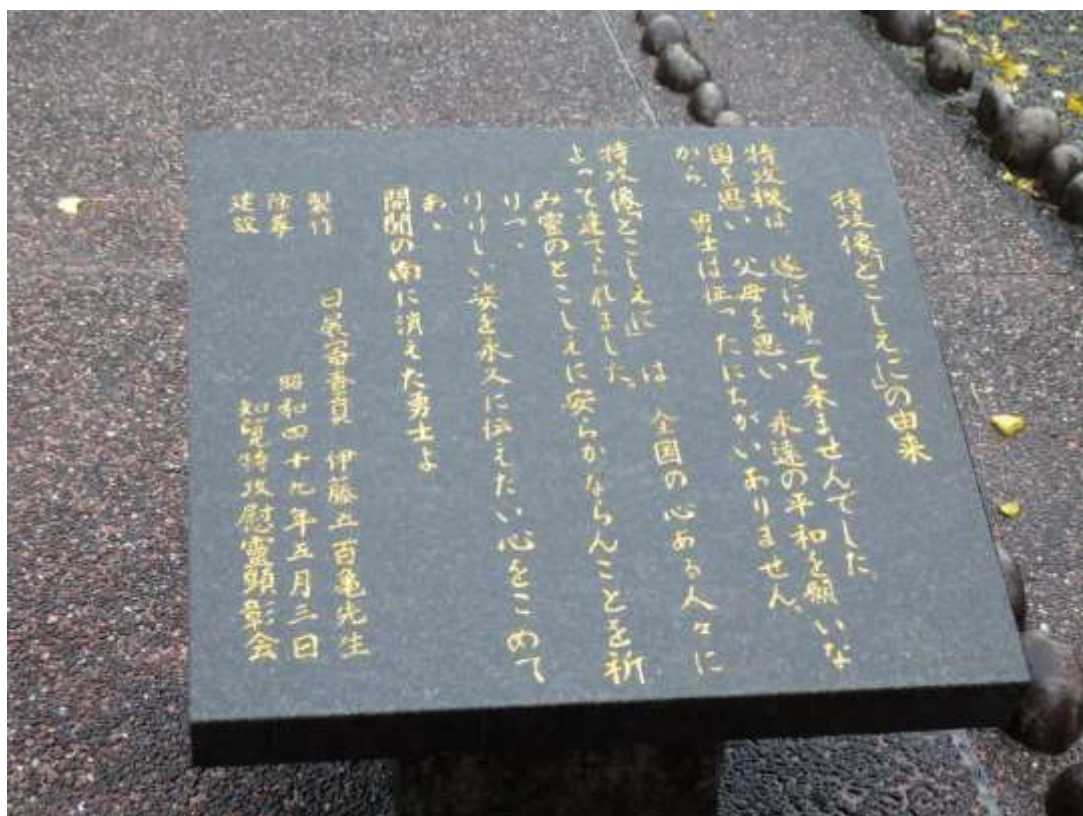 特攻像「とこしえに」の由来
特攻機は 遂に帰って来ませんでした
国を思い 父母を思い 永遠の平和を願いな
がら、勇士は征ったにちがいありません、
特攻像「とこしえに」は 全国の心ある人々に
よって建てられました。
み霊のとこしえに安らかならんことを祈
りつゝ
りりしい姿を永久に伝えたい心をこめて
あゝ
開聞の南に消えた勇士よ
製作 日展審査員 伊藤五百亀先生
除幕 昭和四十九年五月三日
建設 知覧特攻慰霊顕彰会